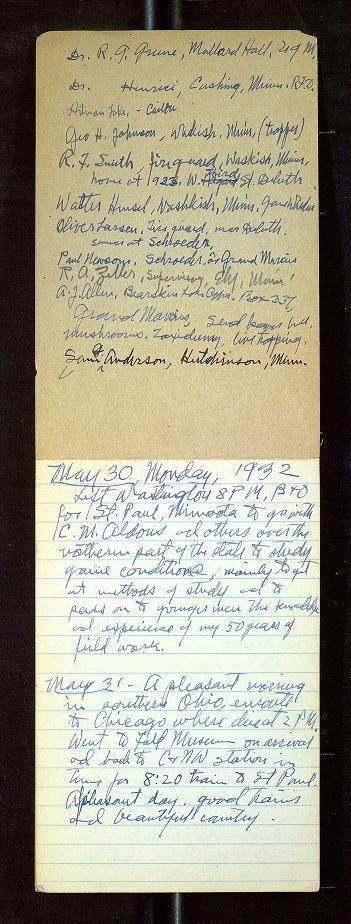 Dr. R. G. Green, Millard Hall, U of M.
Dr. Henrici, Cushing, Minn. R.F.D.
Geo H. Johnson, Waskish, Minn, (trapper)
R. F. Smith fire guard, Waskish, Minn,
home at 923 W. Third St. Duluth
Walter Hensel, Washkish, Minn,
Oliver Larsen, Fire guard, near Duluth.
summer at Schroeder,
Paul Newsom, Schroeder, or Grand Marais
R. A. Zeller, Supervisor, Ely, Minn
A. J. Allen, Bearskin Lake Box 237
Grand Marais, Send
mushrooms. Taxidermy, live trapping.
Sam Anderson, Hutchinson, Minn.
May 30, Monday, 1932
Left Washington 8 P M, B & O
for St. Paul, Minnesota to go with
C. M. Aldous and others over the
northern part of the state to study
game conditions, mainly to get
at methods of study and to
pass on to younger men the knowledge
and experience of my 50 years of
field work.
May 31 - A pleasant morning
in southern Ohio, enroute
to Chicago where due at 2 P.M.
Went to Field Museum on arrival
and back to C & NW station in
time for 8:20 train to St Paul.
A pleasant day, good trains
and beautiful country.